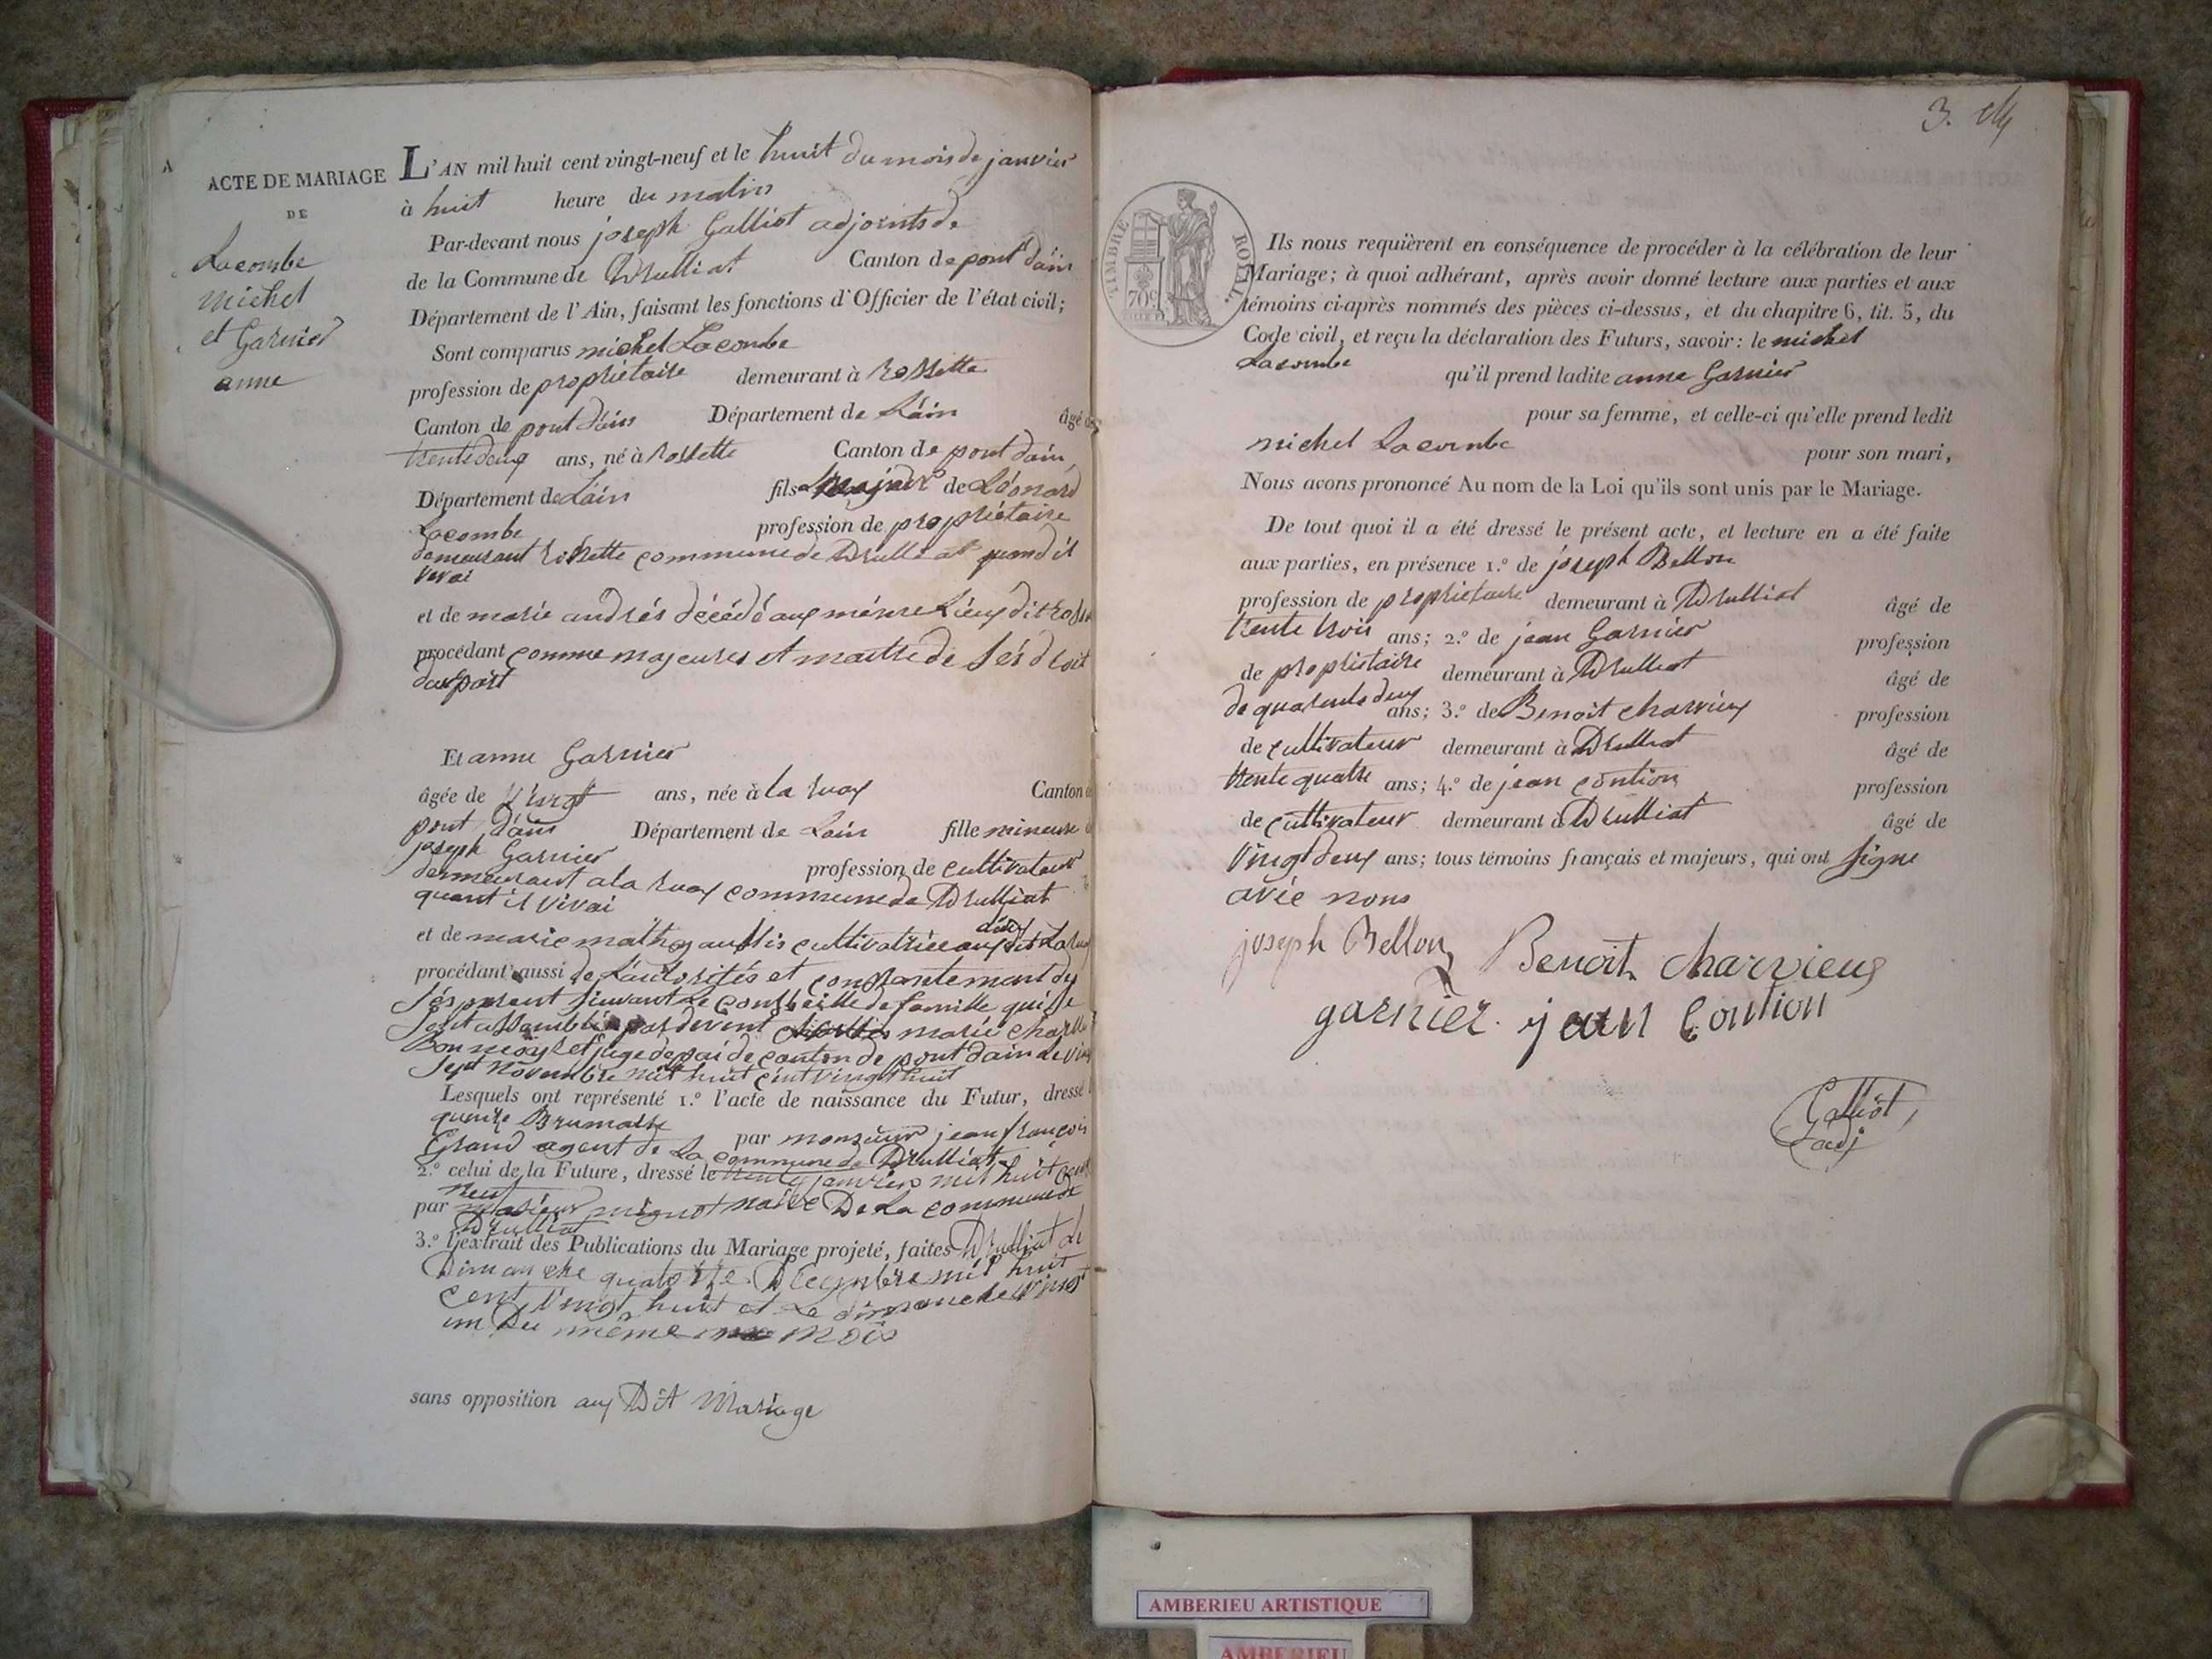 ACTE DE MARIAGE
DE
Lacombe
michel
et Garnier
anne
L'AN mil huit cent vingt-neuf et le huit du mois de janvier
à huit heure du matin
Par-devant nous joseph Galliot adjoints de
de la Commune de Drulliat Canton de pont d'ain
Département de l'Ain, faisant les fonctions d'Officier de l'état civil;
Sont comparus michel Lacombe
profession de propriétaire demeurant à Rossette
Canton de pont d'ain Département de L'ain âgé de
trente deux ans, né à rossette Canton de pont d'ain
Département de L'ain fils majeur de Léonard
Lacombe profession de propriétaire
demeurant rossette commune de Drulliat quand il
vivai
et de marie andrés décédé aux même Lieux dit
procédant comme majeures et maitre de sés droit
Et anne Garnier
âgée de vingt ans, née à la ruax Canton de
pont d'ain Département de Lain fille mineure
joseph Garnier profession de cultivateur
demeurant a la ruax commune de Drulliat
quant il vivai
et de marie cultivatrice aux dit
procédant aussi de L'autorités et
sés parent suivant Le de famille qui se
par devent marie
juge de pai de canton de pont dain Le
sept novembre mil huit cent vingt huit
Lesquels ont représenté 1.º l'acte de naissance du Futur, dressé
Brumaire par monsieur jean françois
Grand agent de La commune de Drulliat
2.º celui de la Future, dressé le janvier mil huit cent
neuf
par mignot maire De La commune de
Drulliat
3.º l'extrait des Publications du Mariage projeté, faites Drulliat Le
Dimanche quatorze Décembre mil huit
cent vingt huit et Le dimanche vingt
un Du même mois
sans opposition aux Dit Mariage
3.
TIMBRE ROYAL
70c
Ils nous requièrent en conséquence de procéder à la célébration de leur
Mariage; à quoi adhérant, après avoir donné lecture aux parties et aux
témoins ci-après nommés des pièces ci-dessus, et du chapitre 6, tit. 5, du
Code civil, et reçu la déclaration des Futurs, savoir: le michel
Lacombe qu'il prend ladite anne Garnier
pour sa femme, et celle-ci qu'elle prend ledit
michel Lacombe pour son mari,
Nous avons prononcé Au nom de la Loi qu'ils sont unis par le Mariage.
De tout quoi il a été dressé le présent acte, et lecture en a été faite
aux parties, en présence 1.º de joseph Bellon
profession de propriétaire demeurant à Drulliat âgé de
trente trois ans; 2.º de jean Garnier profession
de propriétaire demeurant à Drulliat âgé de
de quarente deux ans; 3.º de Benoit charvieux profession
de cultivateur demeurant à Drulliat âgé de
trente quatre ans; 4.º de jean contion profession
de cultivateur demeurant à Drulliat âgé de
vingt deux ans; tous témoins français et majeurs, qui ont signe
avec nous
joseph Bellon Benoit charvieux
garnier jean Contion
Galliot
adj
AMBERIEU ARTISTIQUE
AMBERIEU